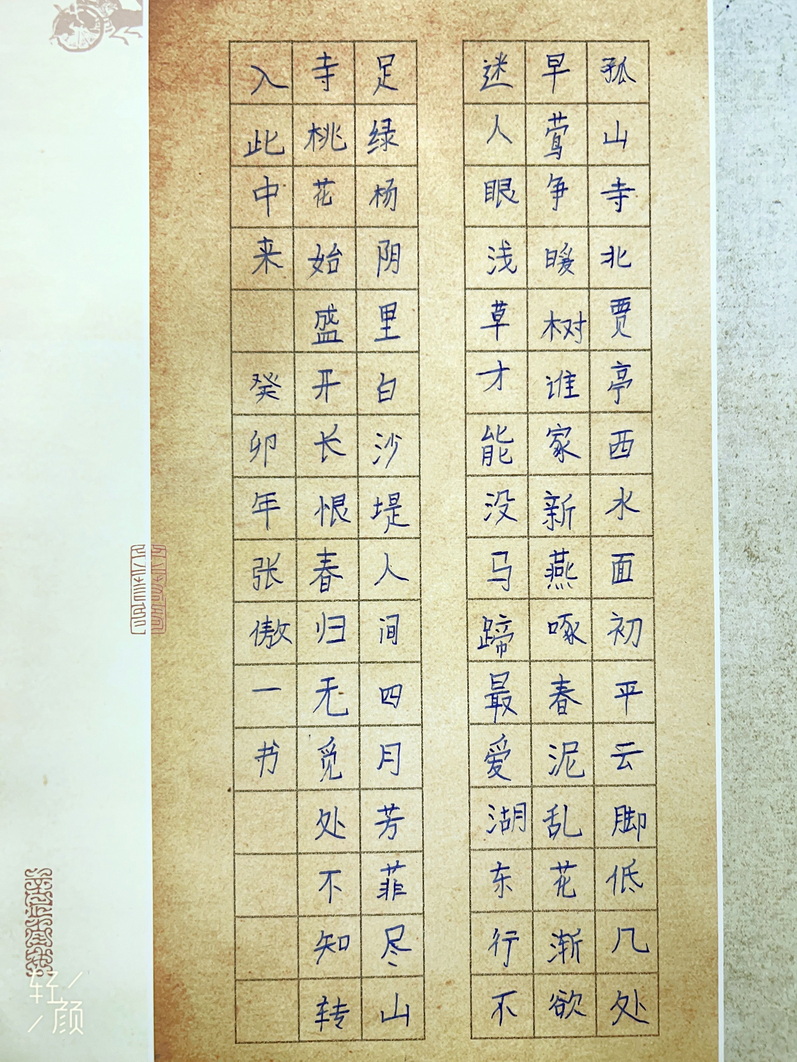 孤山寺北贾亭西水面初平云脚低几处
早莺争暖树谁家新燕啄春泥乱花渐欲
迷人眼浅草才能没马蹄最爱湖东行不
足绿杨阴里白沙堤人间四月芳菲尽山
寺桃花始盛开长恨春归无觅处不知转
入此中来 癸卯年张傲一书
轻颜